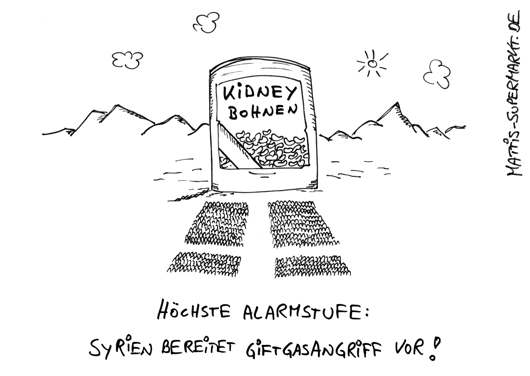 KiDNEY
BOHNEN
MATTIS-SUPERMARKT.DE
HÖCHSTE ALARMSTUFE:
SYRiEN BEREiTET GiFTGASANGRiFF VOR!